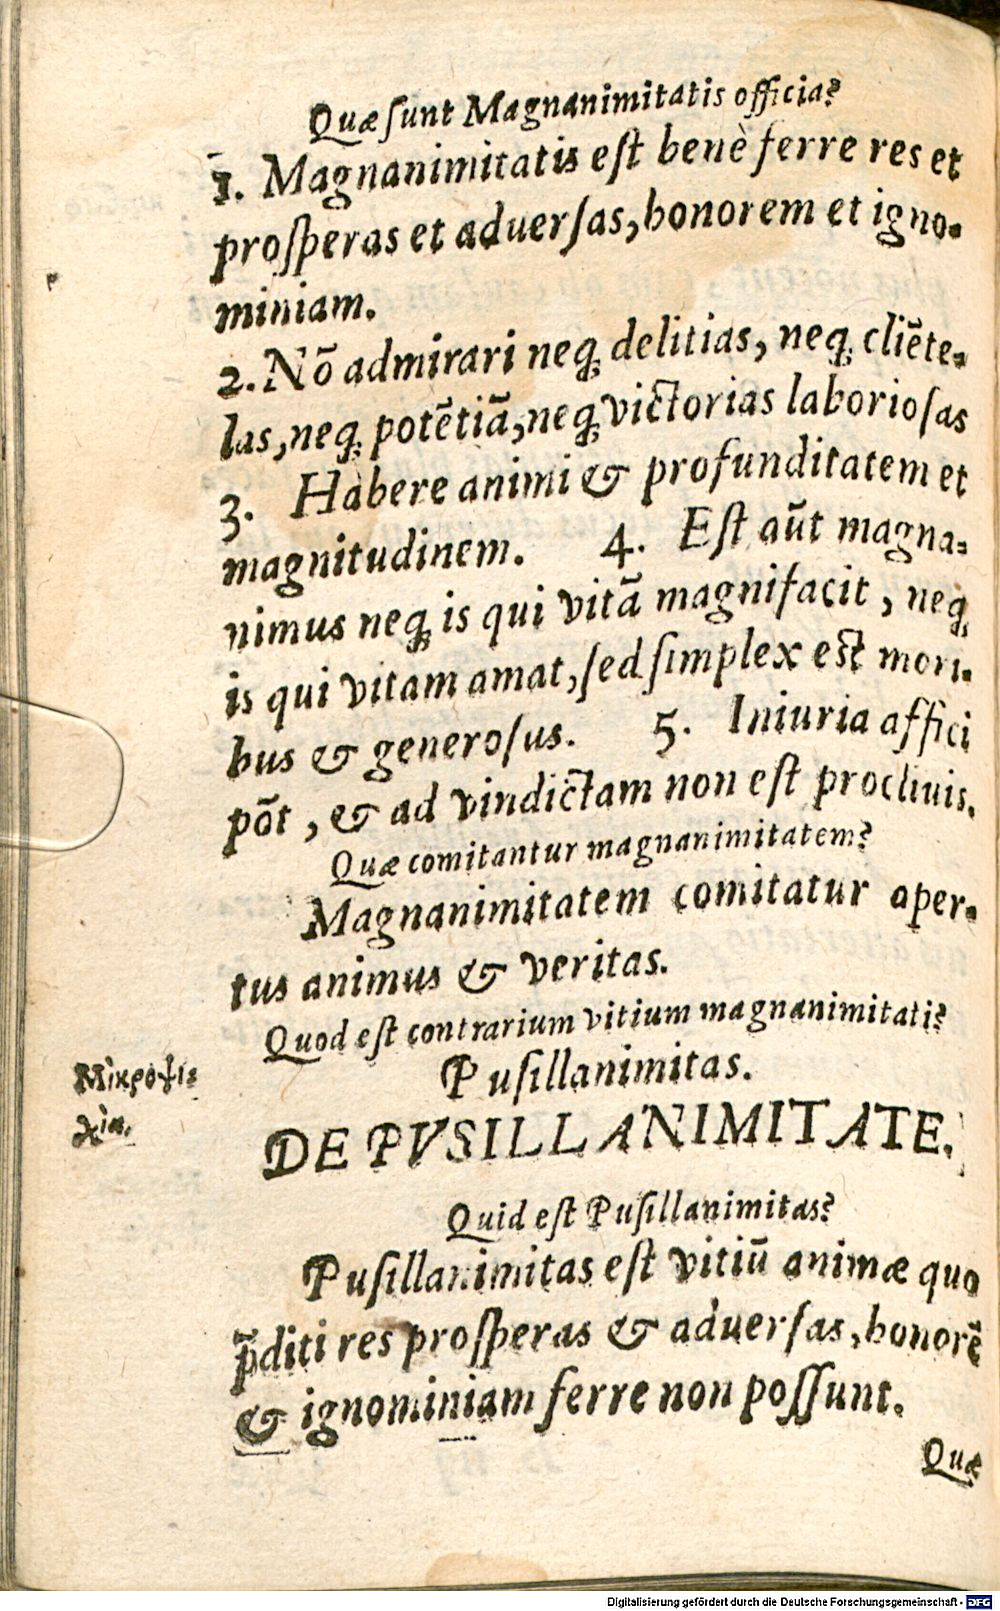 Quæ ſunt Magnanimitatis officia?
1. Magnanimitatis eſt benè ferre res et
proſperas et aduerſas, honorem et igno-
miniam.
2. Nō admirari neq; delitias, neq; cliēte-
las, neq; potētiā, neq; victorias laborioſas
3. Habere animi & profunditatem et
magnitudinem. 4. Eſt aūt magna-
nimus neq; is qui vitā magnifacit, neq;
is qui vitam amat, ſed ſimplex eſt mori-
bus & generoſus. 5. Iniuria affici
pōt, & ad vindictam non eſt procliuis.
Quæ comitantur magnanimitatem?
Magnanimitatem comitatur aper-
tus animus & veritas.
Quod eſt contrarium vitium magnanimitati?
Puſillanimitas.
Μικροψυ-
χία.
DE PVSILLANIMITATE.
Quid eſt Puſillanimitas?
Puſillanimitas eſt vitiū animæ quo
p̄diti res proſperas & aduerſas, honorē
& ignominiam ferre non poſſunt.
Quæ
Digitalisierung gefördert durch die Deutsche Forschungsgemeinschaft - DFG